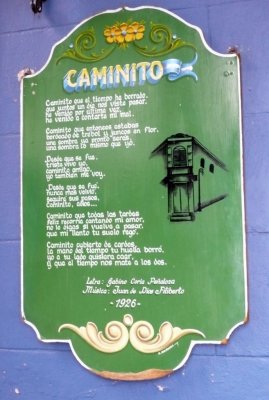 CAMINITO
Caminito que el tiempo ha borrado,
que juntos un día nos viste pasar,
he venido por última vez,
he venido a contarte mi mal.
Caminito que entonces estabas
bordeado de trébol y juncos en flor,
una sombra ya pronto serás,
una sombra lo mismo que yo.
Desde que se fue,
triste vivo yo,
caminito amigo,
yo también me voy.
Desde que se fue,
nunca más volvió,
seguiré sus pasos,
caminito, adiós...
Caminito que todas las tardes
feliz recorría cantando mi amor,
no le digas si vuelve a pasar,
que mi llanto tu suelo regó.
Caminito cubierto de cardos,
la mano del tiempo tu huella borró,
yo a tu lado quisiera caer,
y que el tiempo nos mate a los dos.
Letra: Gabino Coria Peñaloza
Música: Juan de Dios Filiberto
-1926-